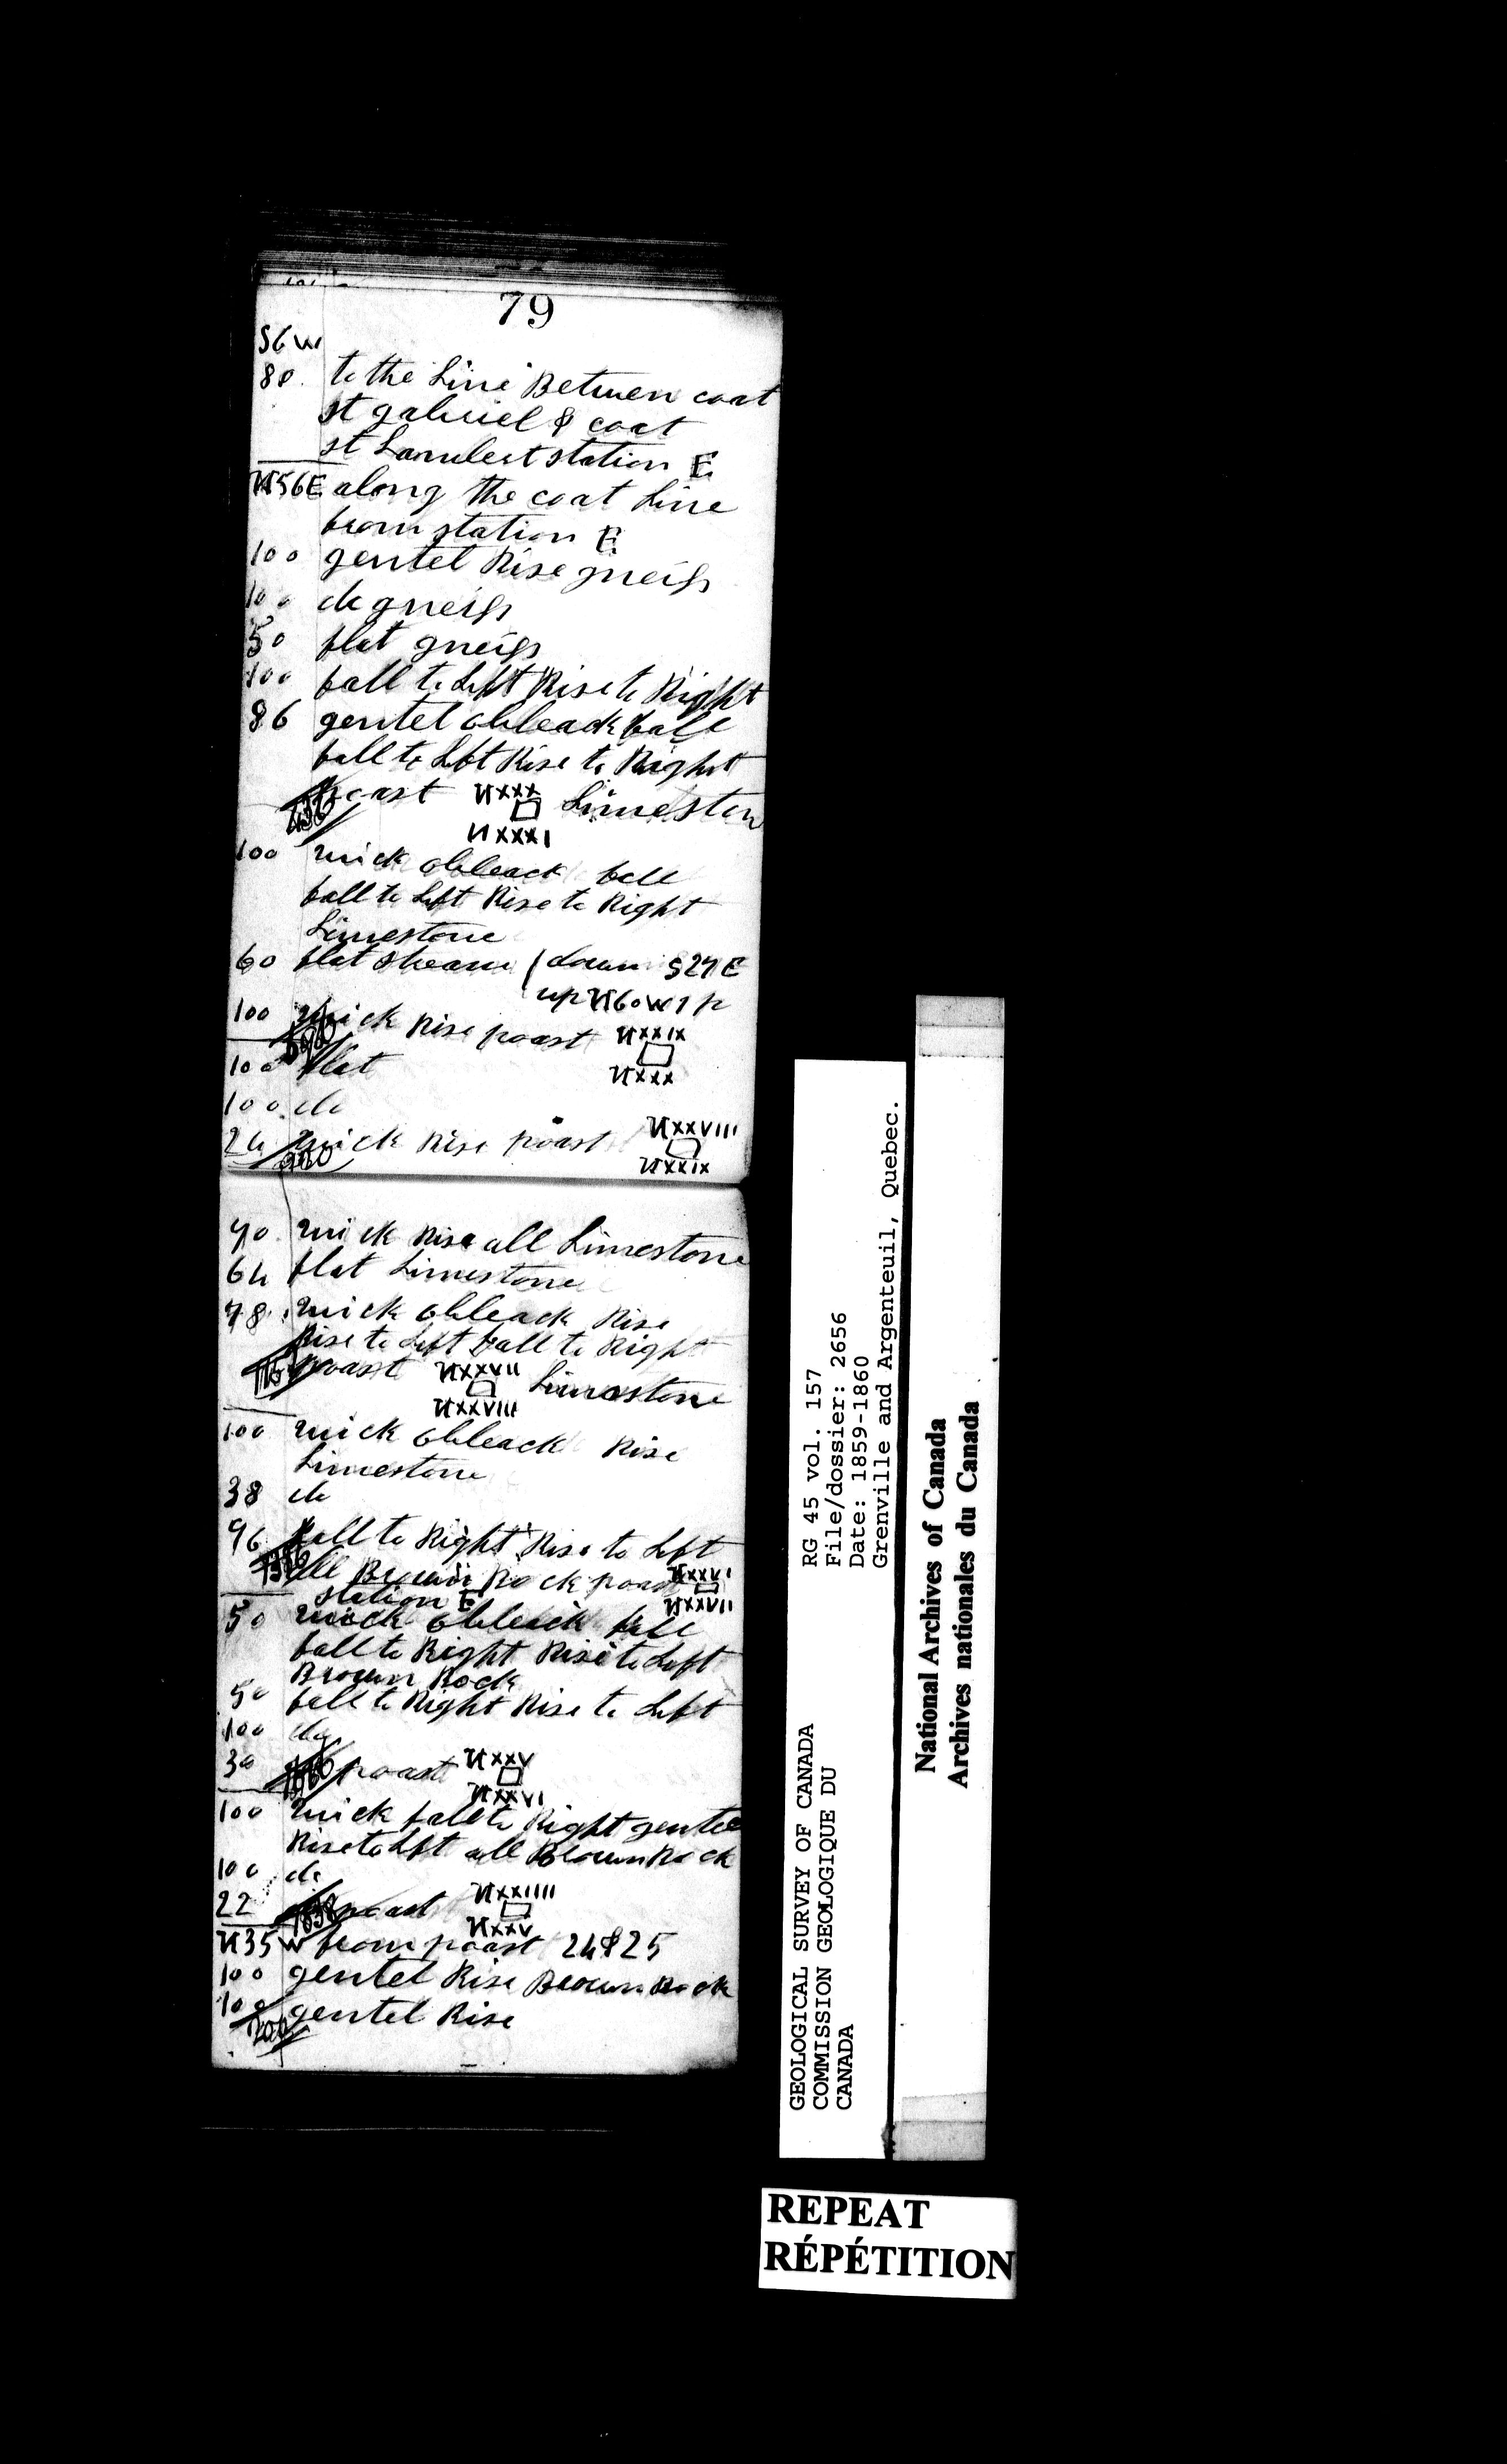 79
S6W
80 to the Line Between coat
st gabriel & coat
st Lambert station E
N56E along the coat Line
from station E
100 gentel Rise gneiss
100 do gneiss
50 flat gneiss
100 fall to Left Rise to Right
86 gentel obleack fall
fall to Left Rise to Right
poast NXXX Limeston
436
NXXXI
100 quick obleack fall
fall to Left Rise to Right
Limestone
60 flat stream (down S27E
up N60W 1 p
100 quick Rise poast NXXIX
100 flat NXXX
100 do
24 quick Rise poast NXXVIII
NXXIX
70 quick Rise all Limestone
64 flat Limestone
78 quick obleack Rise
Rise to Left fall to Right
poast NXXVII Limestone
NXXVIII
100 quick obleack Rise
Limestone
38 do
96 fall to Right Rise to Left
all Brown Rock poast NXXVI
station E NXXVII
50 quick obleack fall
fall to Right Rise to Left
Brown Rock
50 fall to Right Rise to Left
100 do
30 poast NXXV
NXXVI
100 quick fall to Right gentel
Rise to Left all Brown Rock
100 do
22 poast NXXIIII
1838 NXXV
N35W from poast 24&25
100 gentel Rise Brown Rock
100 gentel Rise
200
GEOLOGICAL SURVEY OF CANADA
COMMISSION GEOLOGIQUE DU
CANADA
RG 45 vol. 157
File/dossier: 2656
Date: 1859-1860
Grenville and Argenteuil, Quebec.
National Archives of Canada
Archives nationales du Canada
REPEAT
RÉPÉTITION